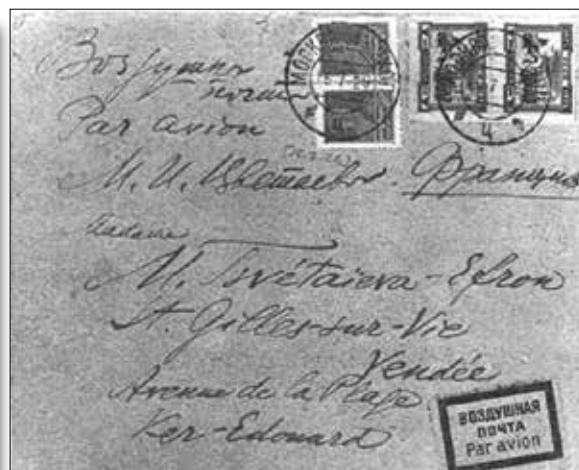 Воздушная
почта
Par avion
М. И. Цветаевой. Франция
Madame
M. Tsvétaïeva-Efron
St. Gilles-sur-Vie
Vendée
Avenue de la Plage
Ker Edouard
ВОЗДУШНАЯ
ПОЧТА
Par avion